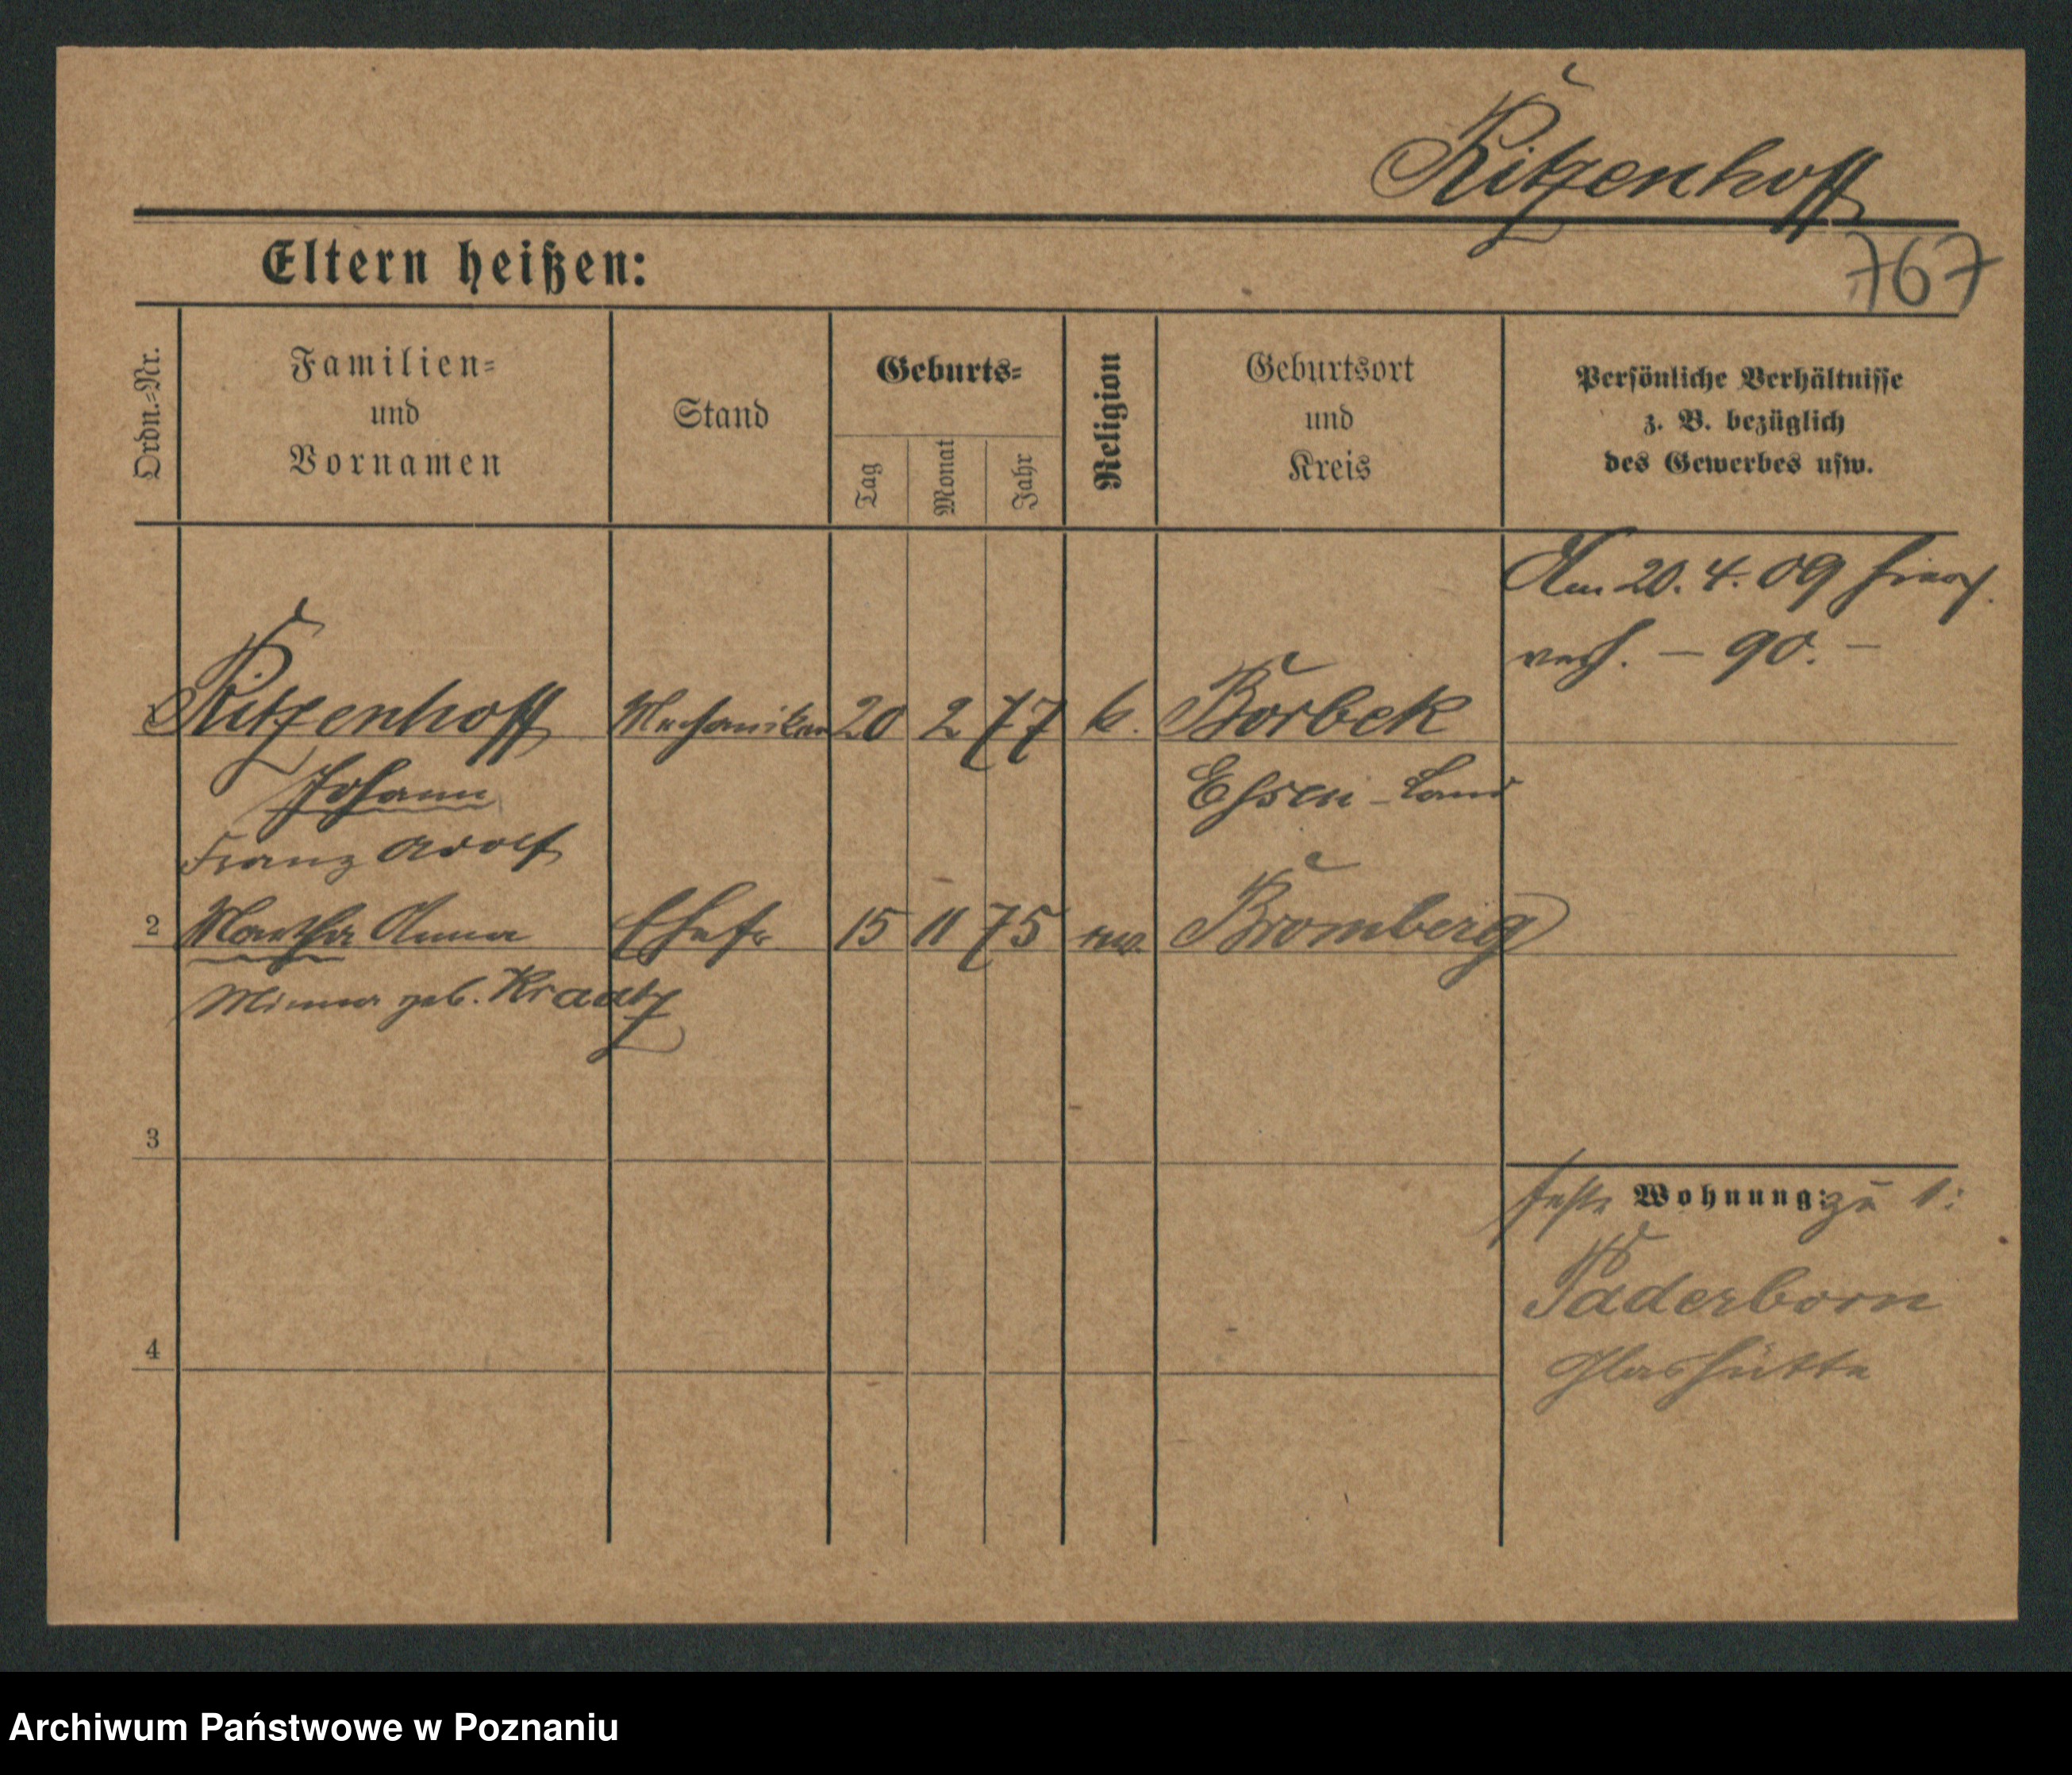 Ritzenhoff
767
Eltern heißen:
Ordn.-Nr.
Familien-
und
Vornamen
Stand
Geburts-
Tag
Monat
Jahr
Religion
Geburtsort
und
Kreis
Persönliche Verhältnisse
z. B. bezüglich
des Gewerbes usw.
Am 20. 4. 09
verh. – 90. –
1 Ritzenhoff Mechaniker 20 2 77 k. Borbek
Johann Essen-Land
Franz Adolf
2 Martha Anna Ehefr 15 11 75 ew. Bromberg
Minna geb. Kraatz
3
feste Wohnung: zu 1:
Paderborn
Glashütte
4
Archiwum Państwowe w Poznaniu